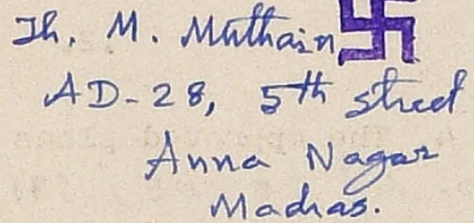 Th. M. Muthain
AD-28, 5th street
Anna Nagar
Madras.